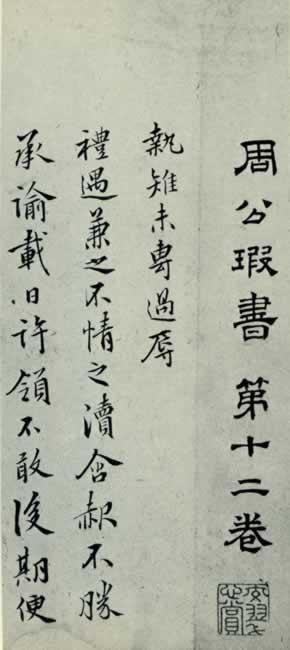 周公瑕書 第十二卷
執雉未專過辱
禮遇兼之不情之瀆含赧不勝
承諭載旧許領不敢後期便